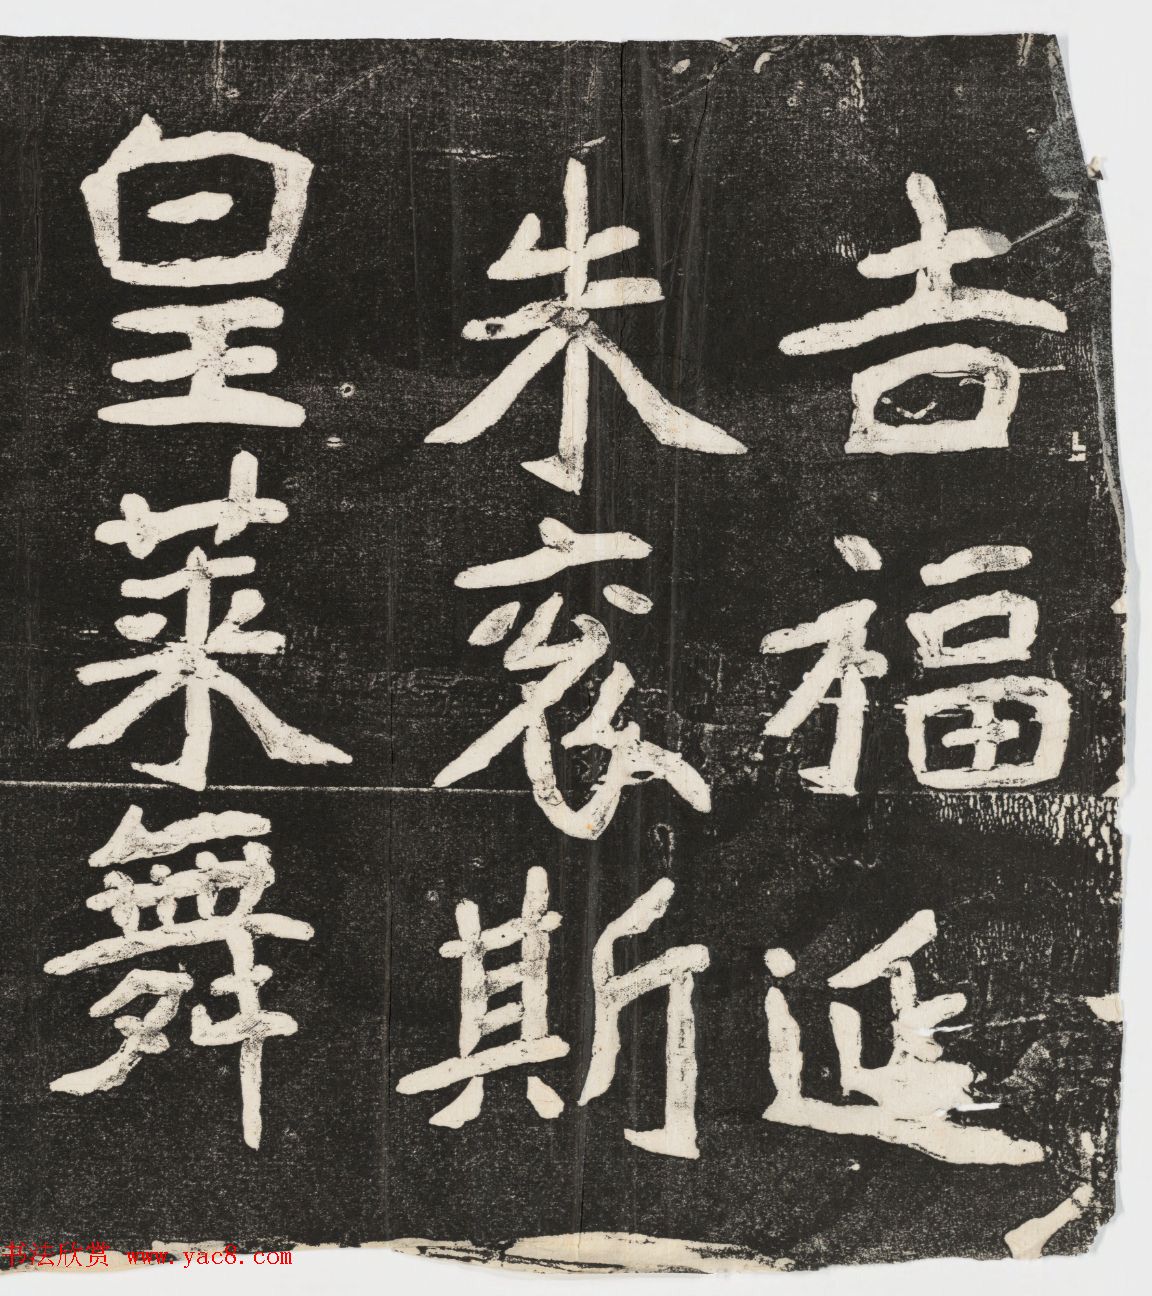 吉福延
朱衮斯
皇莱舞
书法欣赏 www.yac8.com